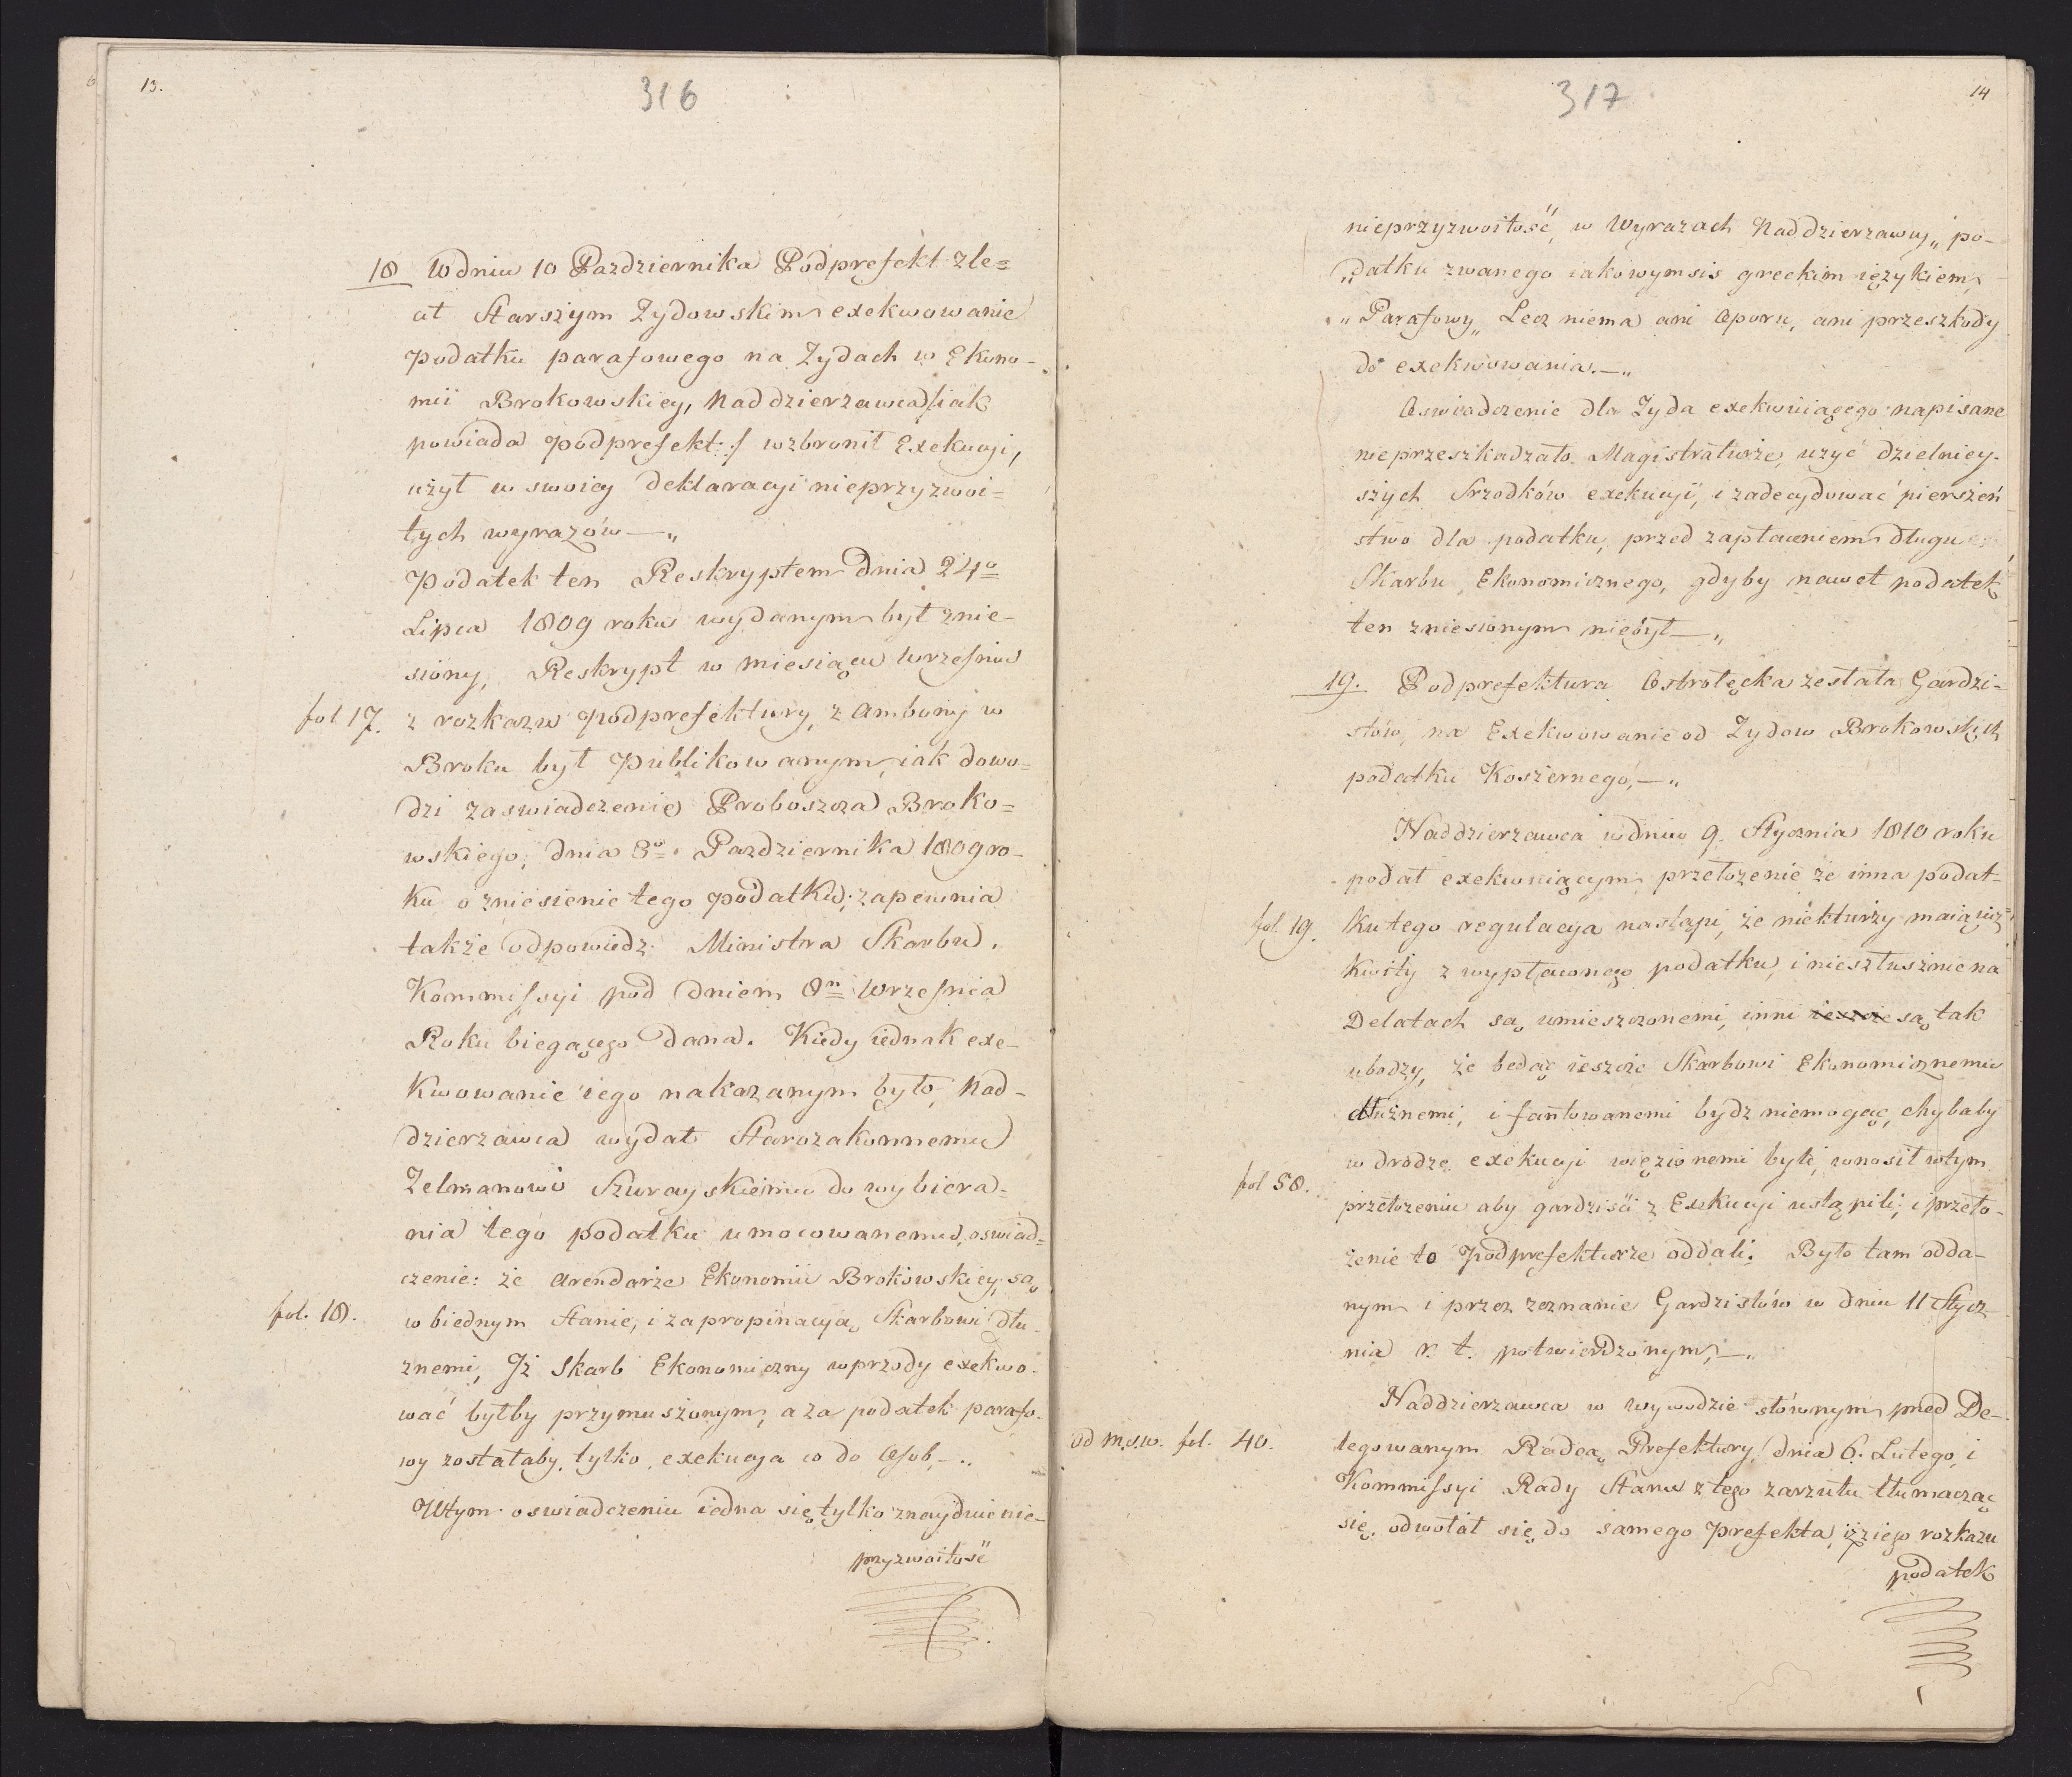 13.
316
18 W dniu 10 Pazdziernika Podprefekt zle=
ał Starszym Zydowskim exekwowanie
podatku parafowego na Zydach w Ekono-
mii Brokowskiey, Naddzierzawca /:iak
powiada podprefekt:/ wzbronił Exekucyi,
użył w swoiey deklaracyi nieprzyzwoi=
tych wyrazów —„
Podatek ten Reskryptem dnia 24o
Lipca 1809 roku wydanym był znie-
siony, Reskrypt w miesiącu Wrzesniu
fol 17. z rozkazu podprefektury, z Ambony w
Broku był Publikowanym, iak dowo=
dzi zaswiadczenie Proboszcza Broko=
wskiego, dnia 3o Pazdziernika 1809 ro-
ku o zniesienie tego podatku; zapewnia
także odpowiedz Ministra Skarbu,
Kommissyi pod dniem 8n Wrzesnia
Roku biegącego dana. Kiedy iednak exe-
kwowanie iego nakazanym było, Nad-
dzierzawca wydał Starozakonnemu
Zelmanowi Szurayskiemu do wybiera=
nia tego podatku umocowanemu, oswiad=
czenie: że Arendarże Ekonomii Brokowskiey, są
fol. 18. w biednym Stanie, i za propinacyą Skarbowi dłu-
znemi, Jż Skarb Ekonomiczny wprzody exekwo-
wać byłby przymuszonym, a za podatek parafo-
wy zostałaby tylko exekucya co do Osob, —„
W tym oswiadczeniu iedna się tylko znayduie nie-
przyzwoitość
14
317
nieprzyzwoitość, w Wyrazach Naddzierzawcy „ po-
„datku zwanego iakowymsis greckim ięzykiem
„Parafowy„ Lecz niema ani Oporu, ani przeszkody
do exekwowania.—„
Oswiadczenie dla Zyda exekwuiącego napisane
nieprzeszkadzało Magistraturze, użyć dzielniey-
szych Srzodków exekucyi, i zadecydować pierszeń
stwo dla podatku, przed zapłaceniem długu
Skarbu Ekonomicznego, gdyby nawet podatek
ten zniesionym niebył —„
19. Podprefektura Ostrołęcka zesłała Gardzi-
stów, na Exekwowanie od Zydow Brokowskich
podatku Koszernego, —„
Naddzierzawca w dniu 9. Stycznia 1810 roku
podał exekwuiącym przełozenie że inna podat-
fol. 19. ku tego regulacya nastąpi, że niektórzy maią iuż
kwity z wypłaconego podatku, i niesztusznie na
Delatach są umieszczonemi, inni są tak
ubodzy, że będąc ieszcze Skarbowi Ekonomicznemu
dłużnemi, i fantowanemi bydz niemogąc, chybaby
w drodze exekucyi więzionemi byli, wnosił w tym
fol 58. przełozeniu aby gardziści z Exekucyi ustąpili, i przeło-
żenie to Podprefekturze oddali. Było tam odda-
nym i przez zeznanie Gardzistów w dniu 11 Stycz-
nia r. t. potwierdzonym, —„
Naddzierzawca w wywodzie słównym przed De-
od M.S.W. fol. 40. legowanym Radcą Prefektury, dnia 6. Lutego, i
Kommissyi Rady Stanu z tego zarzutu tłumacząc
się, odwołał się do samego Prefekta, iż z iego rozkazu
podatek